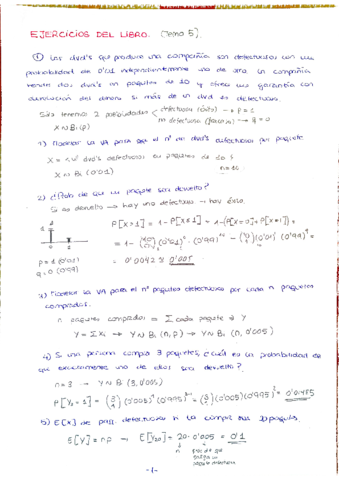 EJERCICIOS DEL LIBRO. (Tema 5).
① Los dvd's que produce una compañía son defectuosos con una
probabilidad de 0'01 independientemente uno de otro. La compañía
vende los dvd's en paquetes de 10 y ofrece una garantía con
devolución del dinero si más de un dvd es defectuoso.
Sólo tenemos 2 posibilidades defectuoso (éxito) → p = 1
no defectuoso (fracaso) → q = 0
X ~ Bi (p)
1) Modelar la VA para el nº de dvd's defectuosos por paquete
X = nº dvd's defectuosos en paquetes de 10
X ~ Bi (0'01)
2) ¿Prob de que un paquete sea devuelto?
Si es devuelto → hay uno defectuoso → hay éxito.
P[X>1] = 1 - P[X≤1] = 1 - (P[X=0] + P[X=1]) =
= 1 - (10 0) (0'01)⁰ · (0'99)¹⁰ - (10 1) (0'01)¹ (0'99)⁹ =
p = 1 (0'01)
q = 0 (0'99)
= 0'0042 ≈ 0'005
3) Modelar la VA para el nº paquetes defectuosos por cada n paquetes
comprados.
n paquetes comprados = Σ cada paquete ∃ Y
Y = ΣXi → Y ~ Bi (n, p) → Y ~ Bi (n, 0'005)
4) Si una persona compra 3 paquetes, ¿cuál es la probabilidad de
que exactamente uno de ellos sea devuelto?
n = 3 → Y ~ Bi (3, 0'005)
P[Y₃ = 1] = (3 1) (0'005)¹ (0'995)³⁻¹ = (3 1) (0'005) (0'995)² = 0'01485
5) E[X] de paq. defectuosos si compra 20 paquetes.
E[Y] = np → E[Y₂₀] = 20 · 0'005 = 0'1
n prob de que
paquete defectuoso
-1-